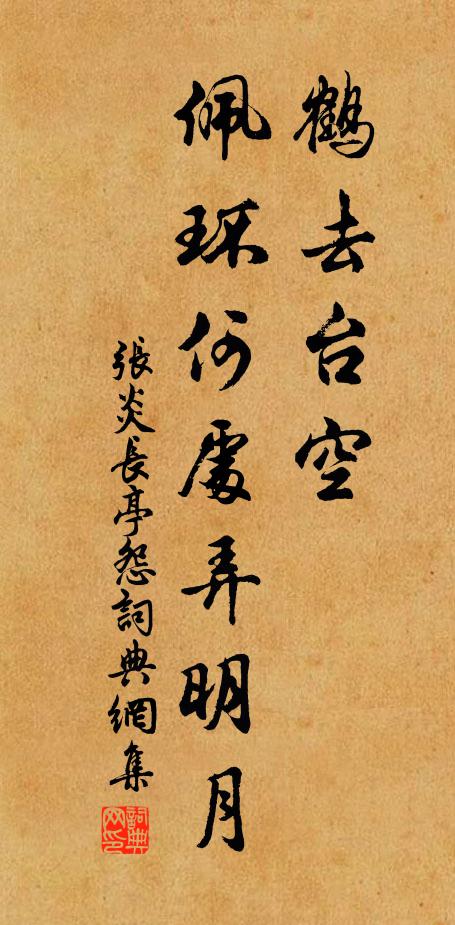 鶴去台空
佩環何處弄明月
張炎長亭怨詞典網集
詞典網印